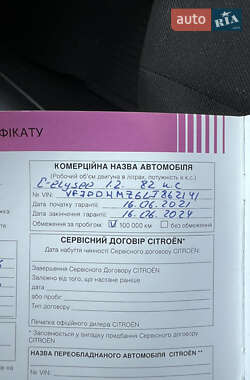 AUTO.RIA
ФІКАТУ
КОМЕРЦІЙНА НАЗВА АВТОМОБІЛЯ
(Робочий об'єм двигуна в літрах, потужність в к.с.)
C-elysee 1.2 82 к.с
№ VIN:
Дата початку гарантії 16.06.2021
Дата закінчення гарантії 16.06.2024
Обмеження за пробігом: 100 000 км без обмеження
СЕРВІСНИЙ ДОГОВІР CITROËN*
Дата набуття чинності Сервісного договору CITROËN:
Завершення Сервісного Договору CITROËN
Залежно від того, що настане раніше
дата
або пробіг
Тип договору:
Печатка офіційного дилера CITROËN
* Засвідчується у випадку придбання Сервісного договору CITROËN
НАЗВА ПЕРЕОБЛАДНАНОГО АВТОМОБІЛЯ CITROËN **